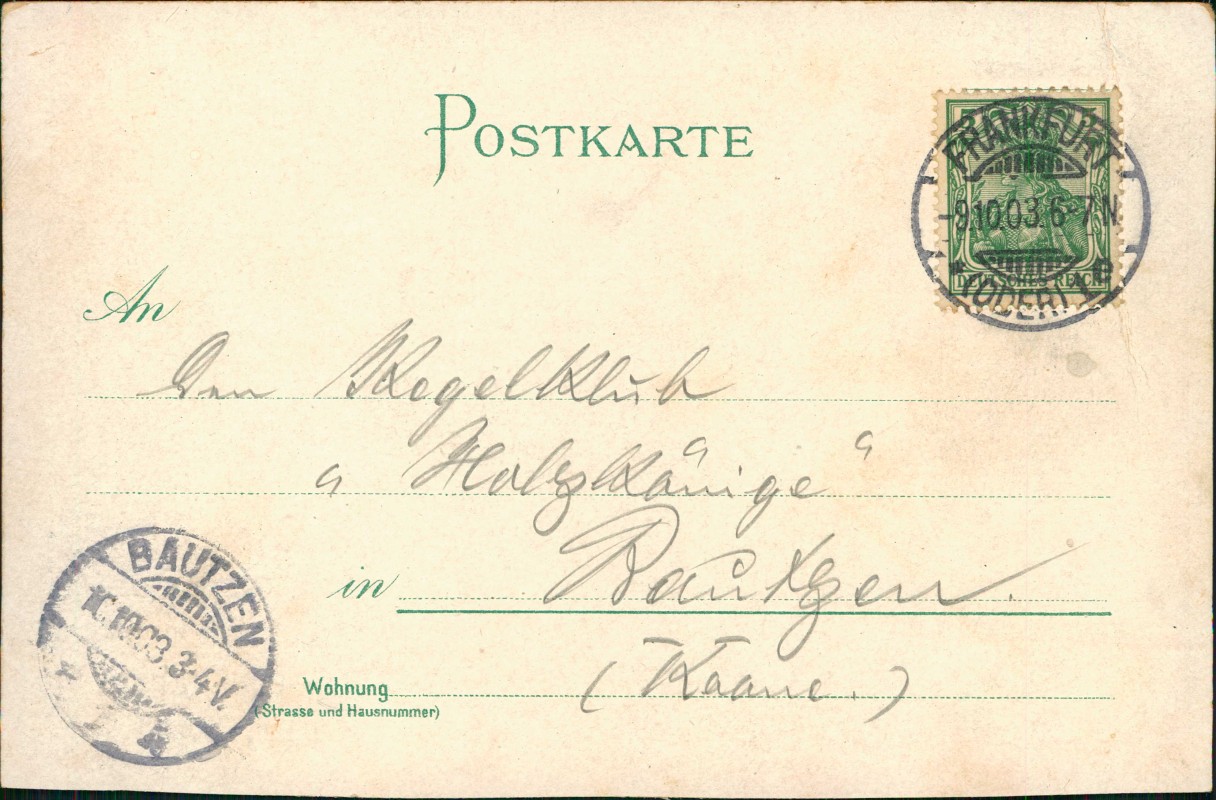 POSTKARTE
FRANKFURT
-9.10.03.6-7N
(ODER) 1
DEUTSCHES REICH
An
Den Kegelklub
"Holzkönige"
in Bautzen.
BAUTZEN
10.10.03.3-4V.
Wohnung
(Strasse und Hausnummer)